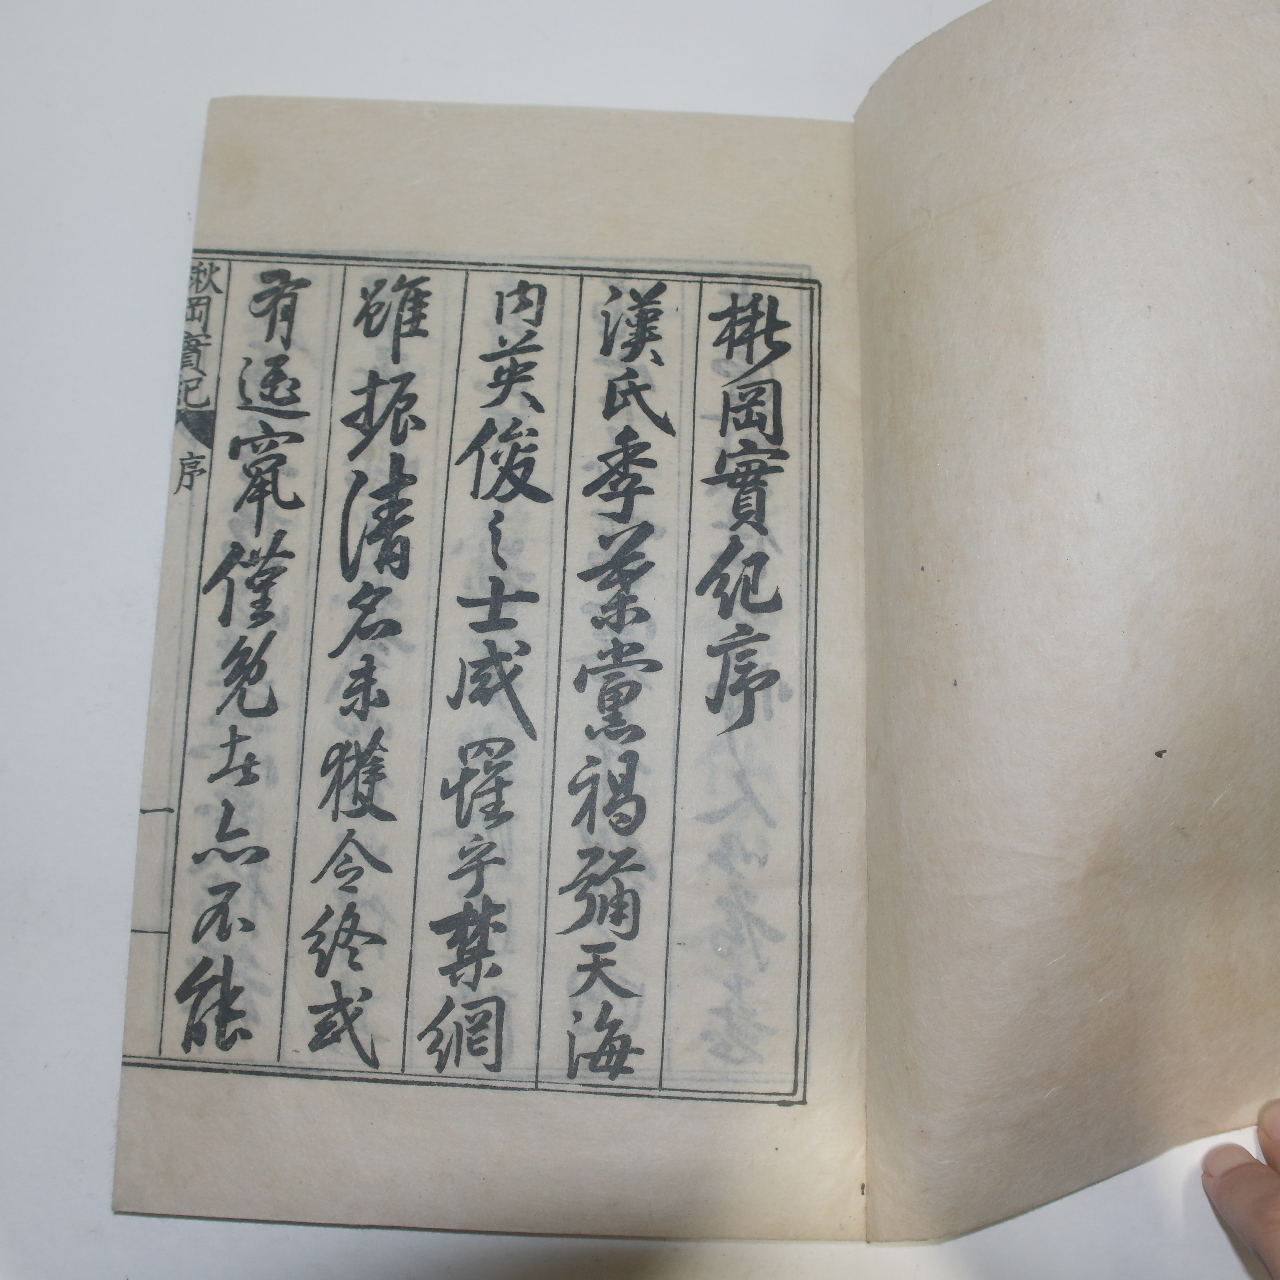 楸岡實紀序
漢氏季葉黨禍彌天海
内英俊之士咸罹乎禁網
雖振清名未獲令終或
有遜竄僅免者亦不能
楸岡實紀
序
一